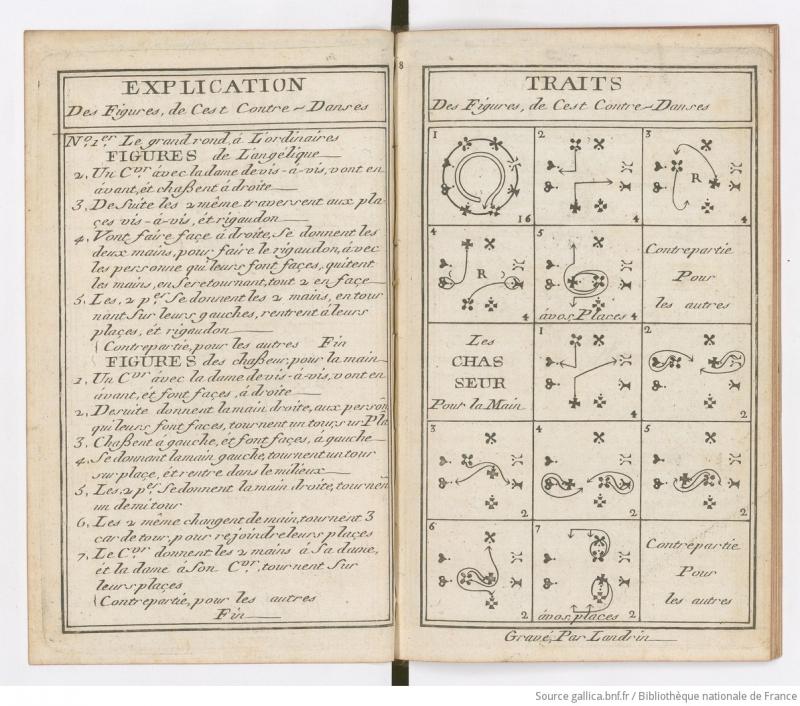 EXPLICATION
Des Figures, de Cest Contre-Danses
No. 1.er Le grand rond, à L'ordinaires
FIGURES de L'angélique
2. Un C.vr àvec la dame de vis-à-vis, vont en
àvant, èt chaßent à droite
3. De Suite les 2 même traversent aux pla-
çes vis-à-vis, èt rigaudon
4. Vont faire façe à droite, Se donnent les
deux mains, pour faire le rigaudon, àvec
les personne qui leurs font façes, quitent
les mains, en Se retournant, tout 2 en façe
5. Les, 2 p.er Se donnent les 2 mains, en tour
nant Sur leurs gauches, rentrent à leurs
plaçes, èt rigaudon
(Contrepartie, pour les autres Fin
FIGURES des chaßeur, pour la main
1. Un C.vr àvec la dame de vis-à-vis, vont en
àvant, èt font façes, à droite
2. De suite donnent la main droite, aux person
qui leurs font faces, tournent un tour, sur Pla
3. Chaßent à gauche, èt font façes, à gauche
4. Se donnant la main gauche, tournent un tour
sur plaçe, èt rentre dans le milieux
5. Les, 2 p.er Se donnent la main droite, tournen
un demi tour
6. Les 2 même changent de main, tournent 3
car de tour, pour rejoindre leurs plaçes
7. Le C.vr donnent les 2 mains à Sa dame,
èt la dame à Son C.vr, tournent Sur
leurs plaçes
(Contrepartie, pour les autres
Fin
8
TRAITS
Des Figures, de Cest Contre-Danses
1
16
2
4
3
R
4
4
R
4
5
àvos, Places 4
Contrepartie
Pour
les autres
Les
CHAS
SEUR
Pour la Main
1
4
2
2
3
2
4
2
5
2
6
2
7
àvos, places 2
Contrepartie
Pour
les autres
Gravé, Par Landrin
Source gallica.bnf.fr / Bibliothèque nationale de France